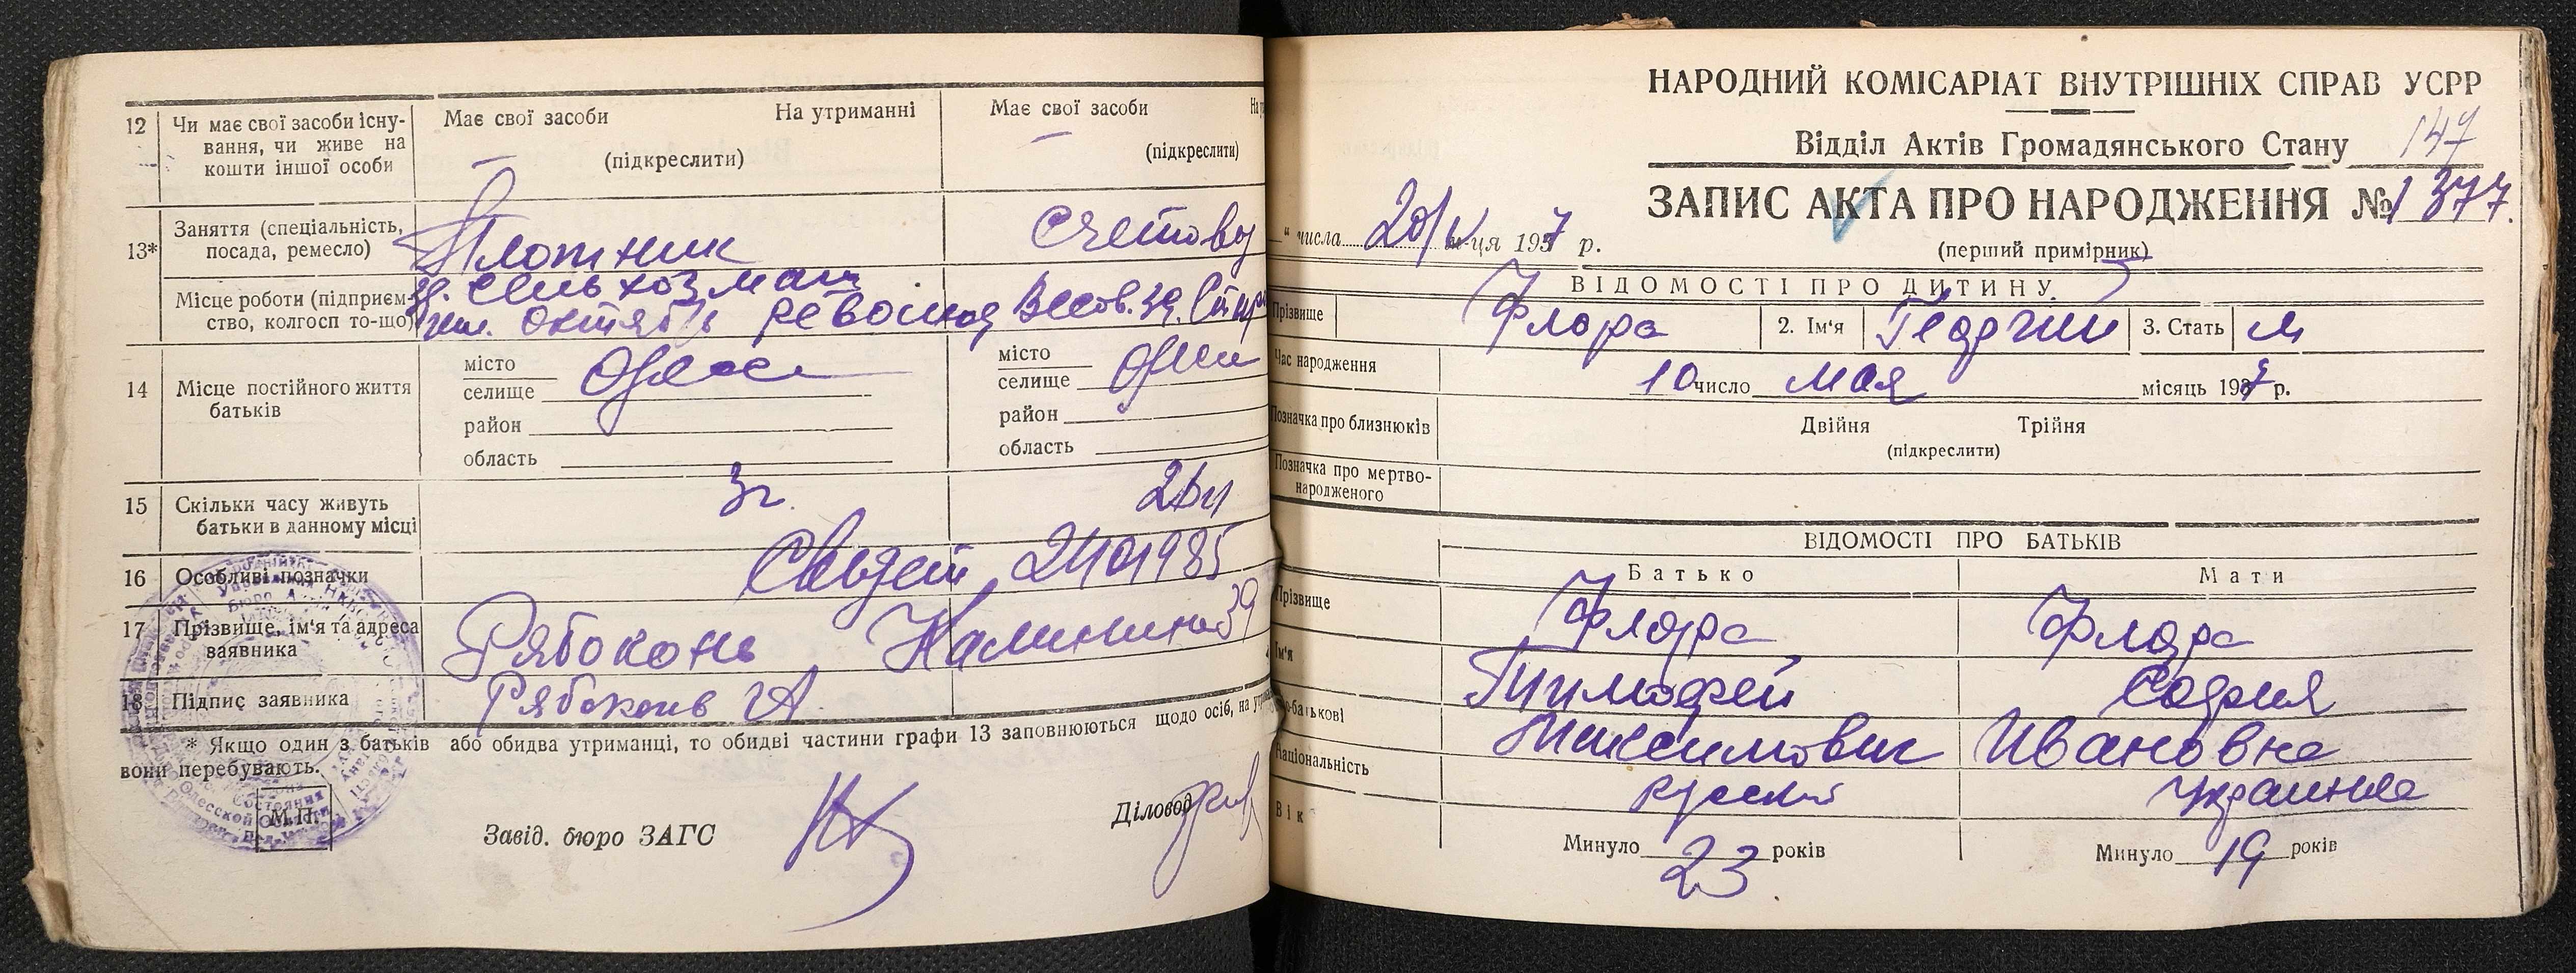 12 Чи має свої засоби існу-
вання, чи живе на
кошти іншої особи
Має свої засоби На утриманні
(підкреслити)
Має свої засоби
(підкреслити)
13* Заняття (спеціальність,
посада, ремесло)
Плотник
Счетовод
Місце роботи (підприєм-
ство, колгосп то-що)
з. Сельхозмаш
им. Октябр революц
14 Місце постійного життя
батьків
місто
селище Одесса
район
область
місто
селище Одесса
район
область
15 Скільки часу живуть
батьки в данному місці
3 г.
16 Особливі позначки
Свидет 2401985
17 Прізвище, ім'я та адреса
заявника
Рябоконь Калинина 39
18 Підпис заявника
Рябоконь
* Якщо один з батьків або обидва утриманці, то обидві частини графи 13 заповнюються щодо осіб, на
вони перебувають.
М.П.
Завід. бюро ЗАГС
Діловод
НАРОДНИЙ КОМІСАРІАТ ВНУТРІШНІХ СПРАВ УСРР
Відділ Актів Громадянського Стану 147
ЗАПИС АКТА ПРО НАРОДЖЕННЯ № 1377.
" числа 20/V м-ця 1937 р.
(перший примірник)
ВІДОМОСТІ ПРО ДИТИНУ
Прізвище Флора 2. Ім'я Георгий 3. Стать м
Час народження 10 число мая місяць 1937 р.
Позначка про близнюків Двійня Трійня
(підкреслити)
Позначка про мертво-
народженого
ВІДОМОСТІ ПРО БАТЬКІВ
Батько Мати
Прізвище Флора Флора
Ім'я Тимофей София
по-батькові Максимович Ивановна
Національність русский Украинка
Вік Минуло 23 років Минуло 19 років